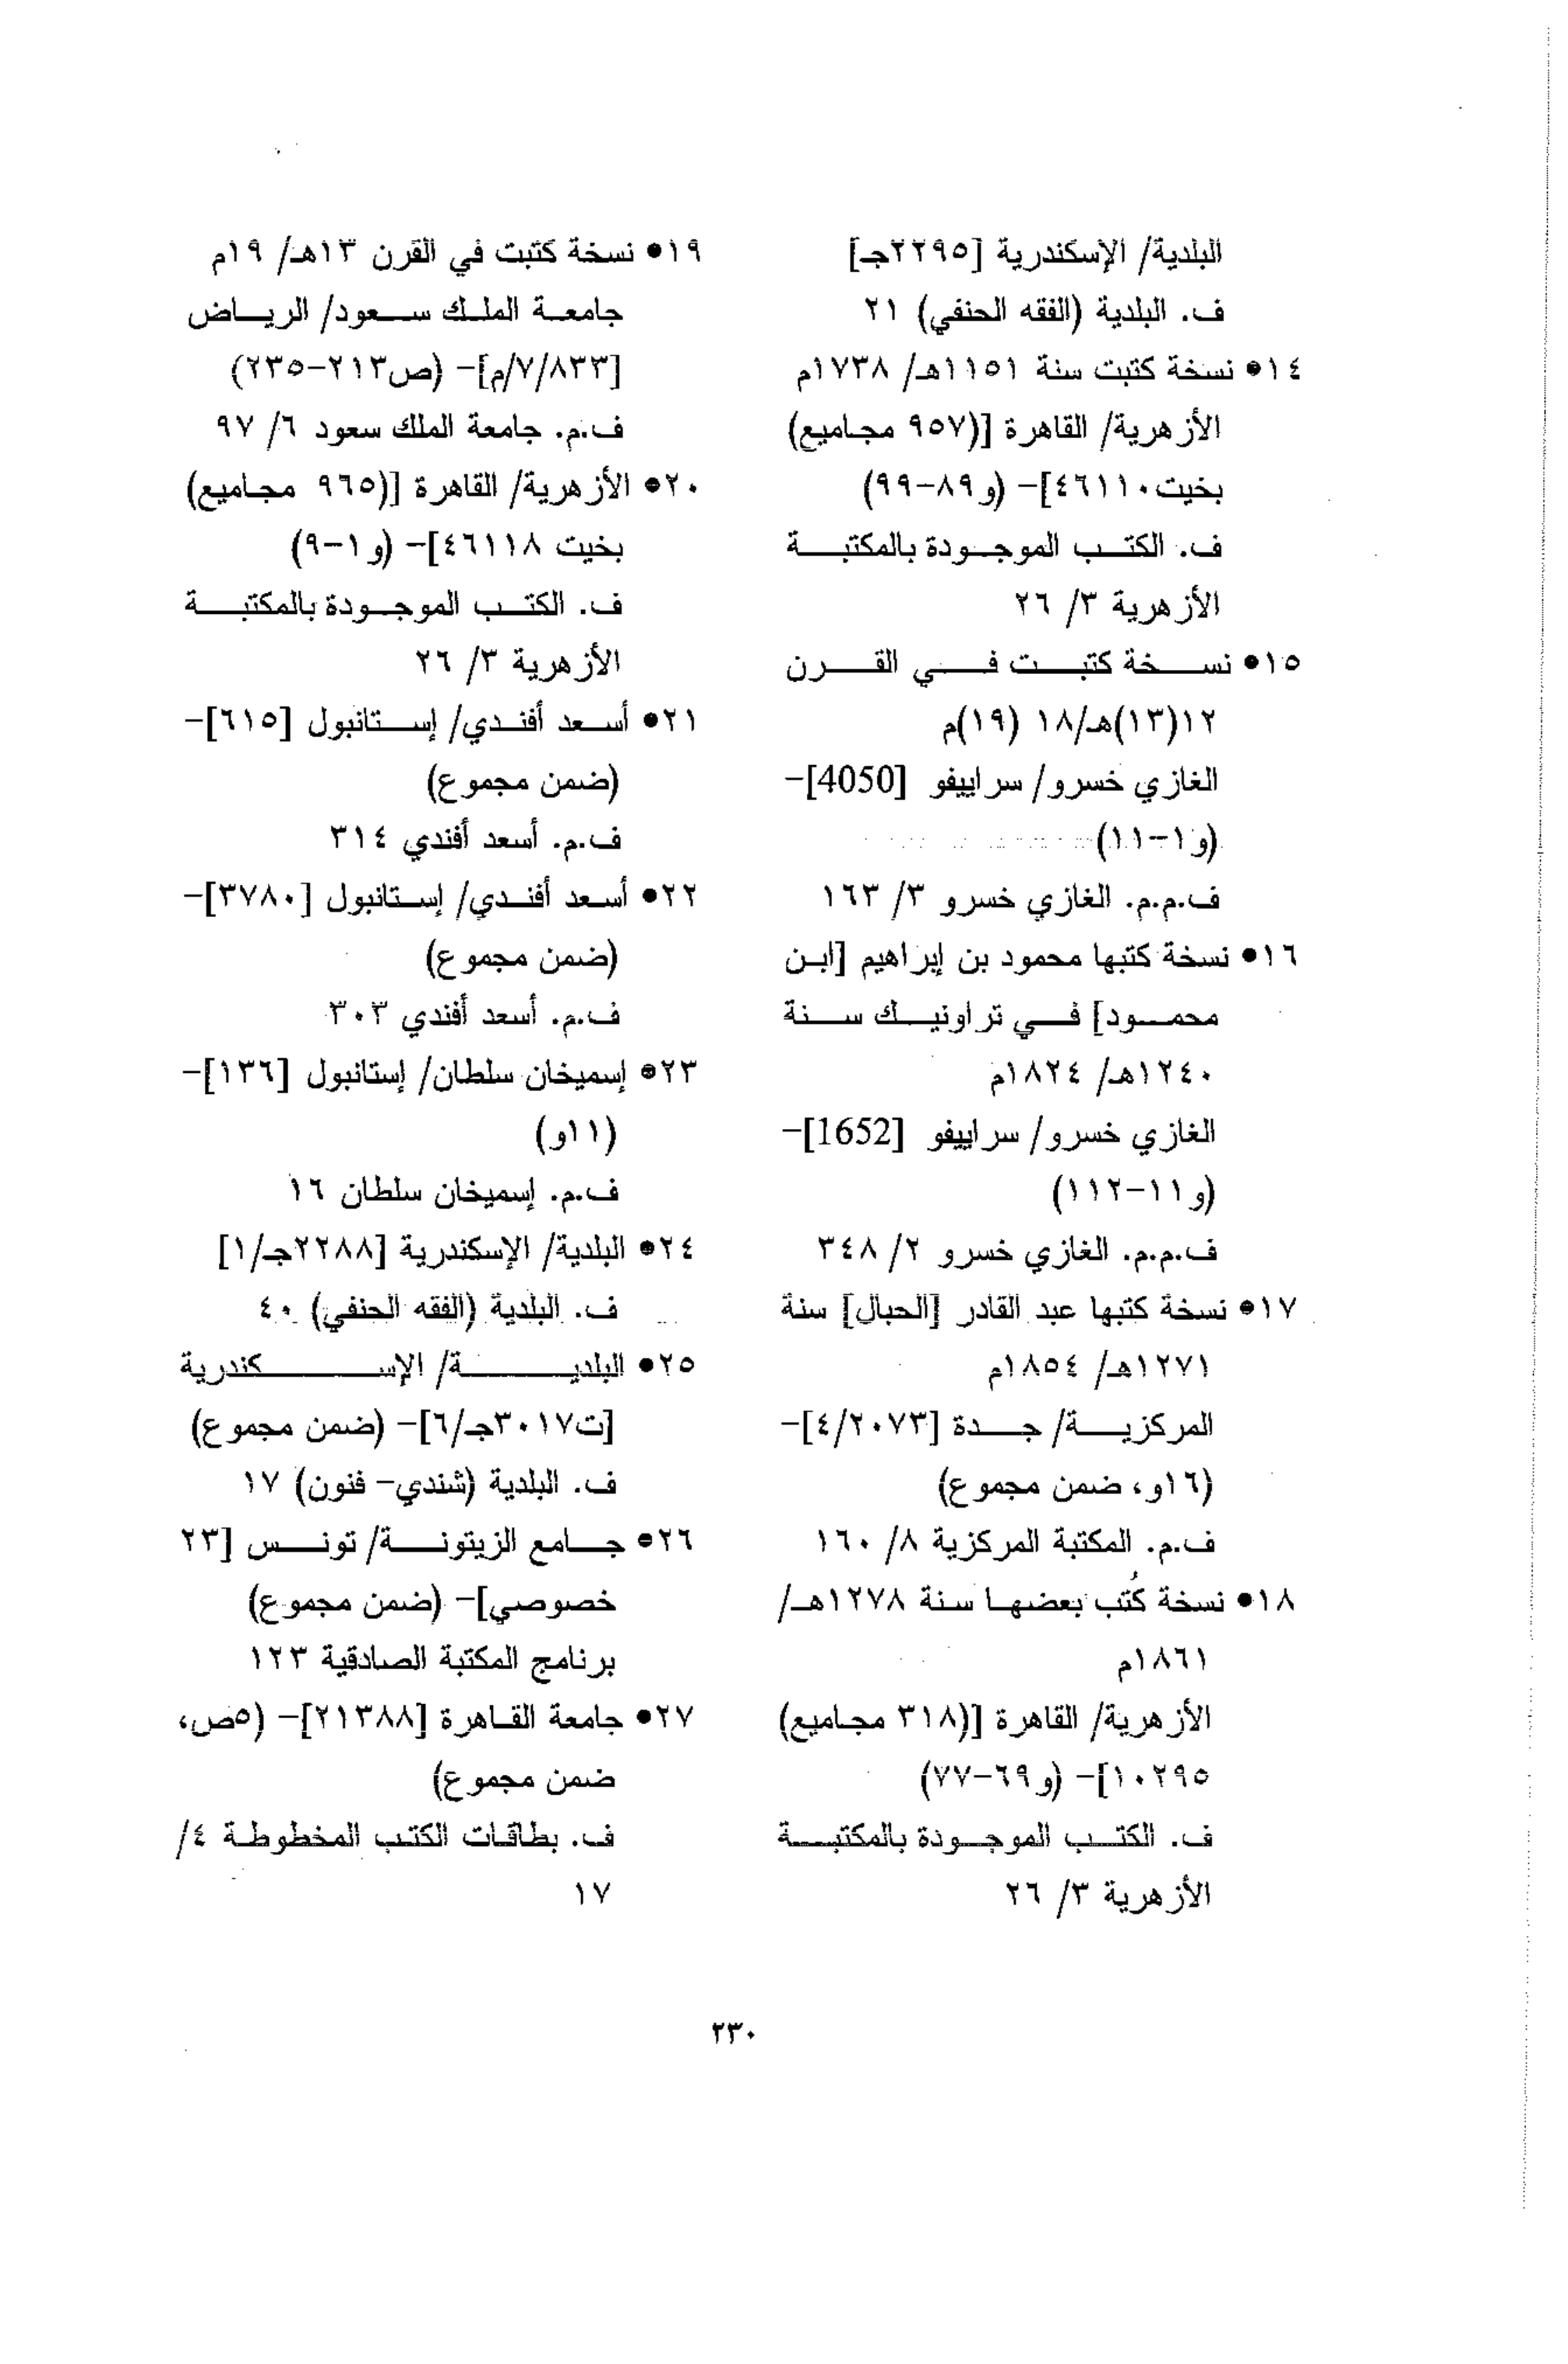 البلدية/ الإسكندرية [٢٢٩٥جـ]
ف. البلدية (الفقه الحنفي) ٢١
١٤• نسخة كتبت سنة ١١٥١هـ/ ١٧٣٨م
الأزهرية/ القاهرة [(٩٥٧ مجاميع)
بخيت٤٦١١٠]- (و٨٩-٩٩)
ف. الكتب الموجودة بالمكتبة
الأزهرية ٣/ ٢٦
١٥• نسخة كتبت في القرن
١٢(١٣)هـ/١٨ (١٩)م
الغازي خسرو/ سراييفو [4050]-
(و١-١١)
ف.م.م. الغازي خسرو ٣/ ١٦٣
١٦• نسخة كتبها محمود بن إبراهيم [ابن
محمود] في تراونيك سنة
١٢٤٠هـ/ ١٨٢٤م
الغازي خسرو/ سراييفو [1652]-
(و١١-١١٢)
ف.م.م. الغازي خسرو ٢/ ٣٤٨
١٧• نسخة كتبها عبد القادر [الحبال] سنة
١٢٧١هـ/ ١٨٥٤م
المركزية/ جدة [٤/٢٠٧٣]-
(١٦و، ضمن مجموع)
ف.م. المكتبة المركزية ٨/ ١٦٠
١٨• نسخة كُتب بعضها سنة ١٢٧٨هـ/
١٨٦١م
الأزهرية/ القاهرة [(٣١٨ مجاميع)
١٠٢٩٥]- (و٦٩-٧٧)
ف. الكتب الموجودة بالمكتبة
الأزهرية ٣/ ٢٦
١٩• نسخة كتبت في القرن ١٣هـ/ ١٩م
جامعة الملك سعود/ الرياض
[٧/٨٣٣/م]- (ص٢١٣-٢٣٥)
ف.م. جامعة الملك سعود ٦/ ٩٧
٢٠• الأزهرية/ القاهرة [(٩٦٥ مجاميع)
بخيت ٤٦١١٨]- (و١-٩)
ف. الكتب الموجودة بالمكتبة
الأزهرية ٣/ ٢٦
٢١• أسعد أفندي/ إستانبول [٦١٥]-
(ضمن مجموع)
ف.م. أسعد أفندي ٣١٤
٢٢• أسعد أفندي/ إستانبول [٣٧٨٠]-
(ضمن مجموع)
ف.م. أسعد أفندي ٣٠٣
٢٣• إسميخان سلطان/ إستانبول [١٣٦]-
(١١و)
ف.م. إسميخان سلطان ١٦
٢٤• البلدية/ الإسكندرية [٢٢٨٨جـ/١]
ف. البلدية (الفقه الحنفي) ٤٠
٢٥• البلدية/ الإسكندرية
[ت٣٠١٧جـ/٦]- (ضمن مجموع)
ف. البلدية (شندي- فنون) ١٧
٢٦• جامع الزيتونة/ تونس [٢٣
خصوصي]- (ضمن مجموع)
برنامج المكتبة الصادقية ١٢٣
٢٧• جامعة القاهرة [٢١٣٨٨]- (٥ص،
ضمن مجموع)
ف. بطاقات الكتب المخطوطة ٤/
١٧
٢٣٠